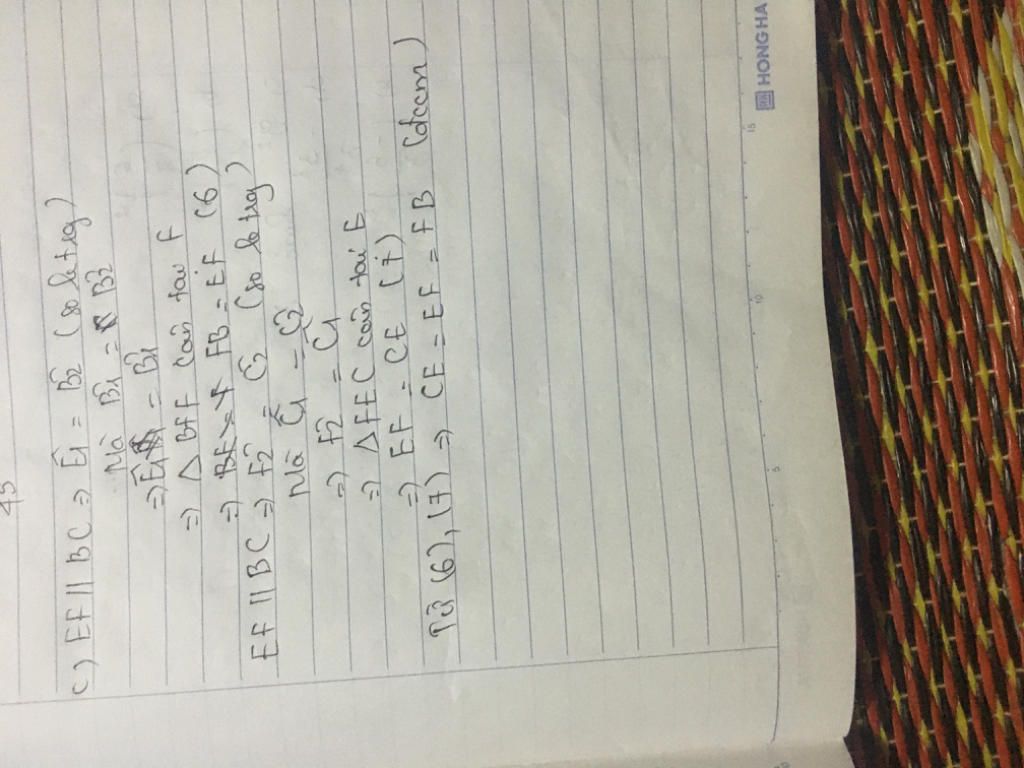 c) EF // BC ⇒ Ê1 = B̂2 (so le trg)
Mà B̂1 = B̂2
⇒ Ê1 = B̂1
⇒ △ BFF cân tại F
⇒ FB = EF (6)
EF // BC ⇒ F̂2 = Ĉ2 (so le trg)
Mà Ĉ1 = Ĉ2
⇒ F̂2 = Ĉ1
⇒ △ FEC cân tại E
⇒ EF = CE (7)
Từ (6), (7) ⇒ CE = EF = FB (đccm)
5
10
15
HONG HA